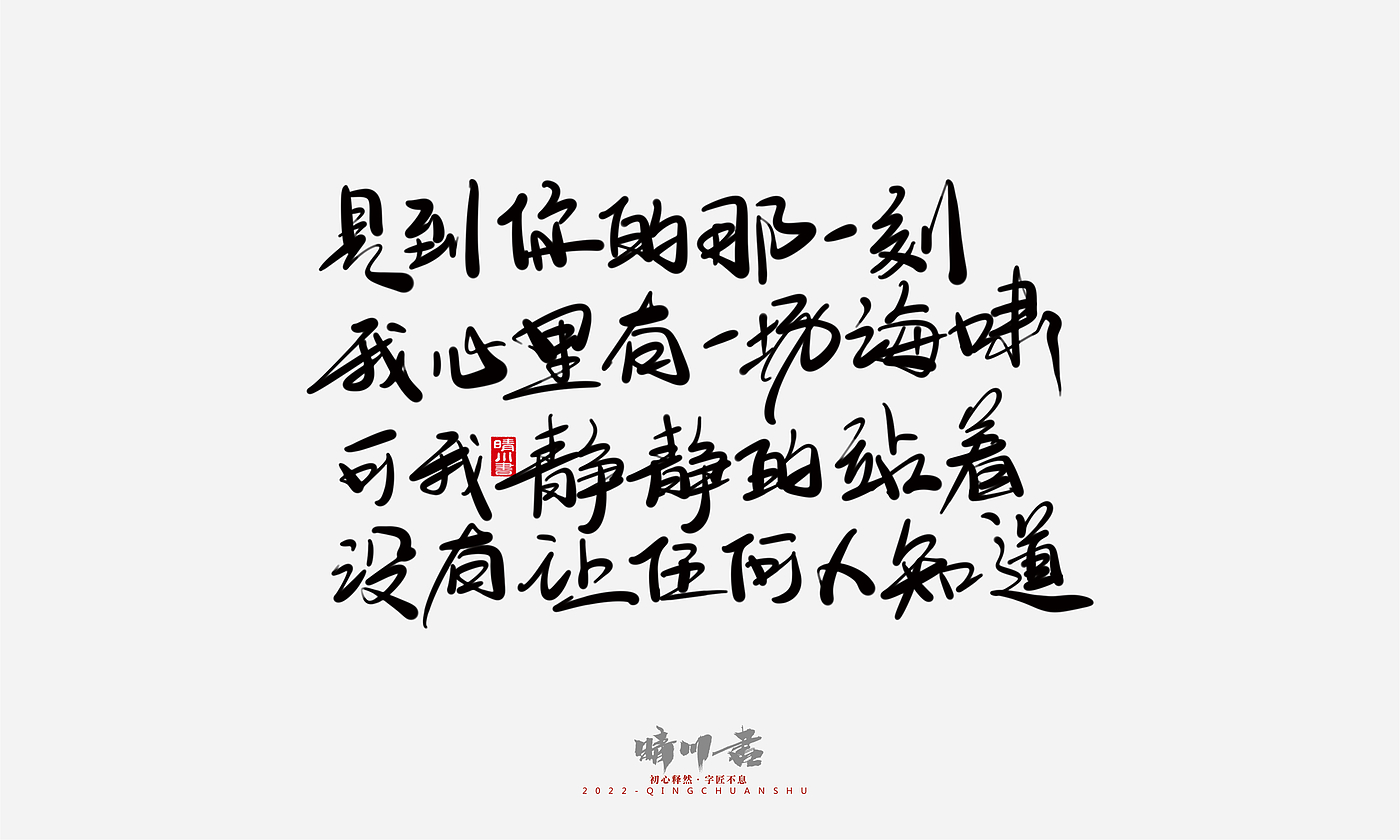 見到你的那一刻
我心里有一场海啸
可我静静的站着
晴川書
没有让任何人知道
晴川書
初心释然·字匠不息
2022-QINGCHUANSHU